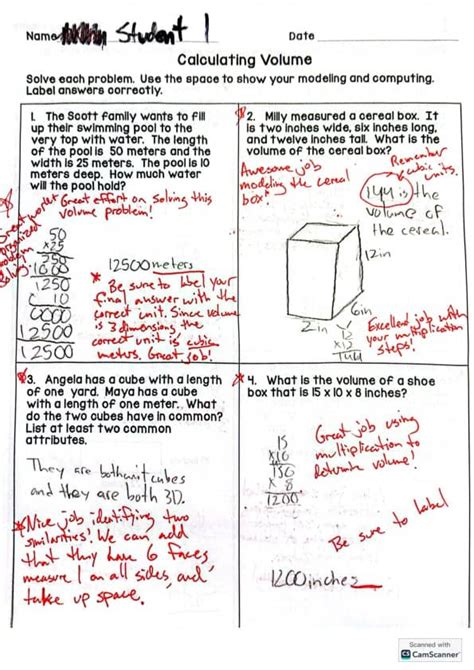 Name Student 1 Date
Calculating Volume
Solve each problem. Use the space to show your modeling and computing.
Label answers correctly.
1. The Scott family wants to fill
up their swimming pool to the
very top with water. The length
of the pool is 50 meters and the
width is 25 meters. The pool is 10
meters deep. How much water
will the pool hold?
Great effort on solving this
volume problem!
Great work
organized
problem
solving
50
x25
1000
1250
10
0000
12500
12500
12500 meters
Be sure to label your
final answer with the
correct unit. Since volume
is 3 dimensions, the
correct unit is cubic
meters. Great job!
2. Milly measured a cereal box. It
is two inches wide, six inches long,
and twelve inches tall. What is the
volume of the cereal box?
Awesome job
modeling the cereal
box!
Remember
cubic
units.
144 is the
volume of
the cereal.
12in
6in
2in
12
x12
144
Excellent job with
your multiplication
steps!
3. Angela has a cube with a length
of one yard. Maya has a cube
with a length of one meter. What
do the two cubes have in common?
List at least two common
attributes.
They are both unit cubes
and they are both 3D.
Nice job identifying two
similarities! We can add
that they have 6 faces,
measure 1 on all sides, and
take up space.
4. What is the volume of a shoe
box that is 15 x 10 x 8 inches?
15
x10
150
x 8
1200
Great job using
multiplication to
determine volume!
Be sure to label
1200 inches
Scanned with
CS CamScanner